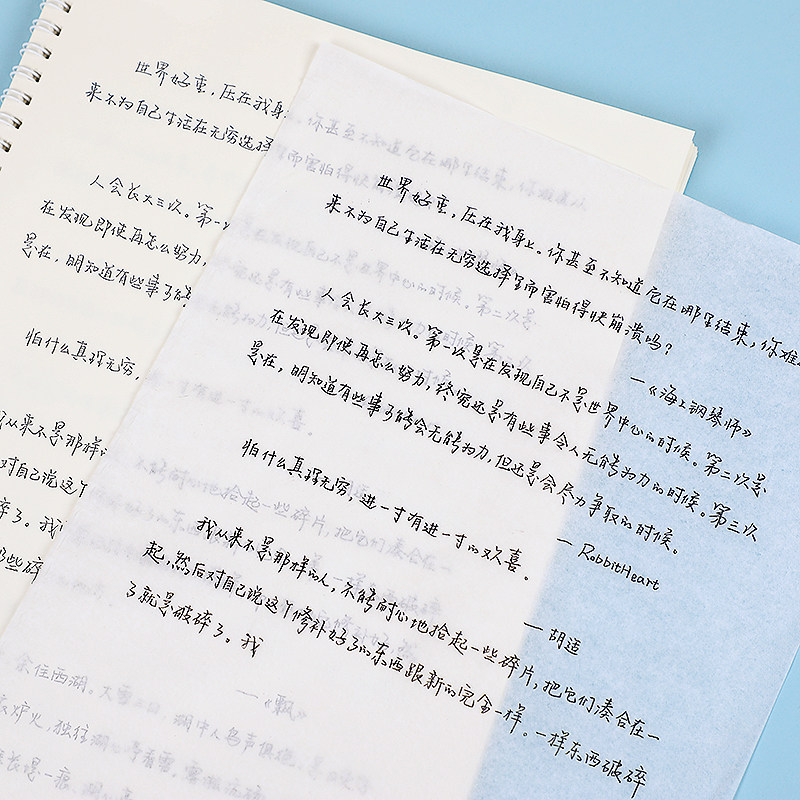 世界好重，压在我身
来不为自己生活在无穷选择
人会长大三次。第一
在发现即使再怎么努力，
是在，明知道有些事可能
怕什么真理无穷，
我从来不是那样的
对自己说这个
碎了。我
那些碎
世界好重，压在我身上。你甚至不知道它在哪里结束，你难
来不为自己生活在无穷选择里而害怕得快崩溃吗？
—《海上钢琴师》
人会长大三次。第一次是在发现自己不是世界中心的时候。第二次是
在发现即使再怎么努力，终究还是有些事令人无能为力的时候。第三次
是在，明知道有些事可能会无能为力，但还是会尽力争取的时候。
— RabbitHeart
怕什么真理无穷，进一寸有进一寸的欢喜。
— 胡适
我从来不是那样的人，不能耐心地拾起一些碎片，把它们凑合在一
起，然后对自己说这个修补好了的东西跟新的完全一样。一样东西破碎
了就是破碎了。我
—《飘》
余住西湖。大雪三日，湖中人鸟声俱绝。
炉火，独往湖心亭看雪。
长堤一痕、